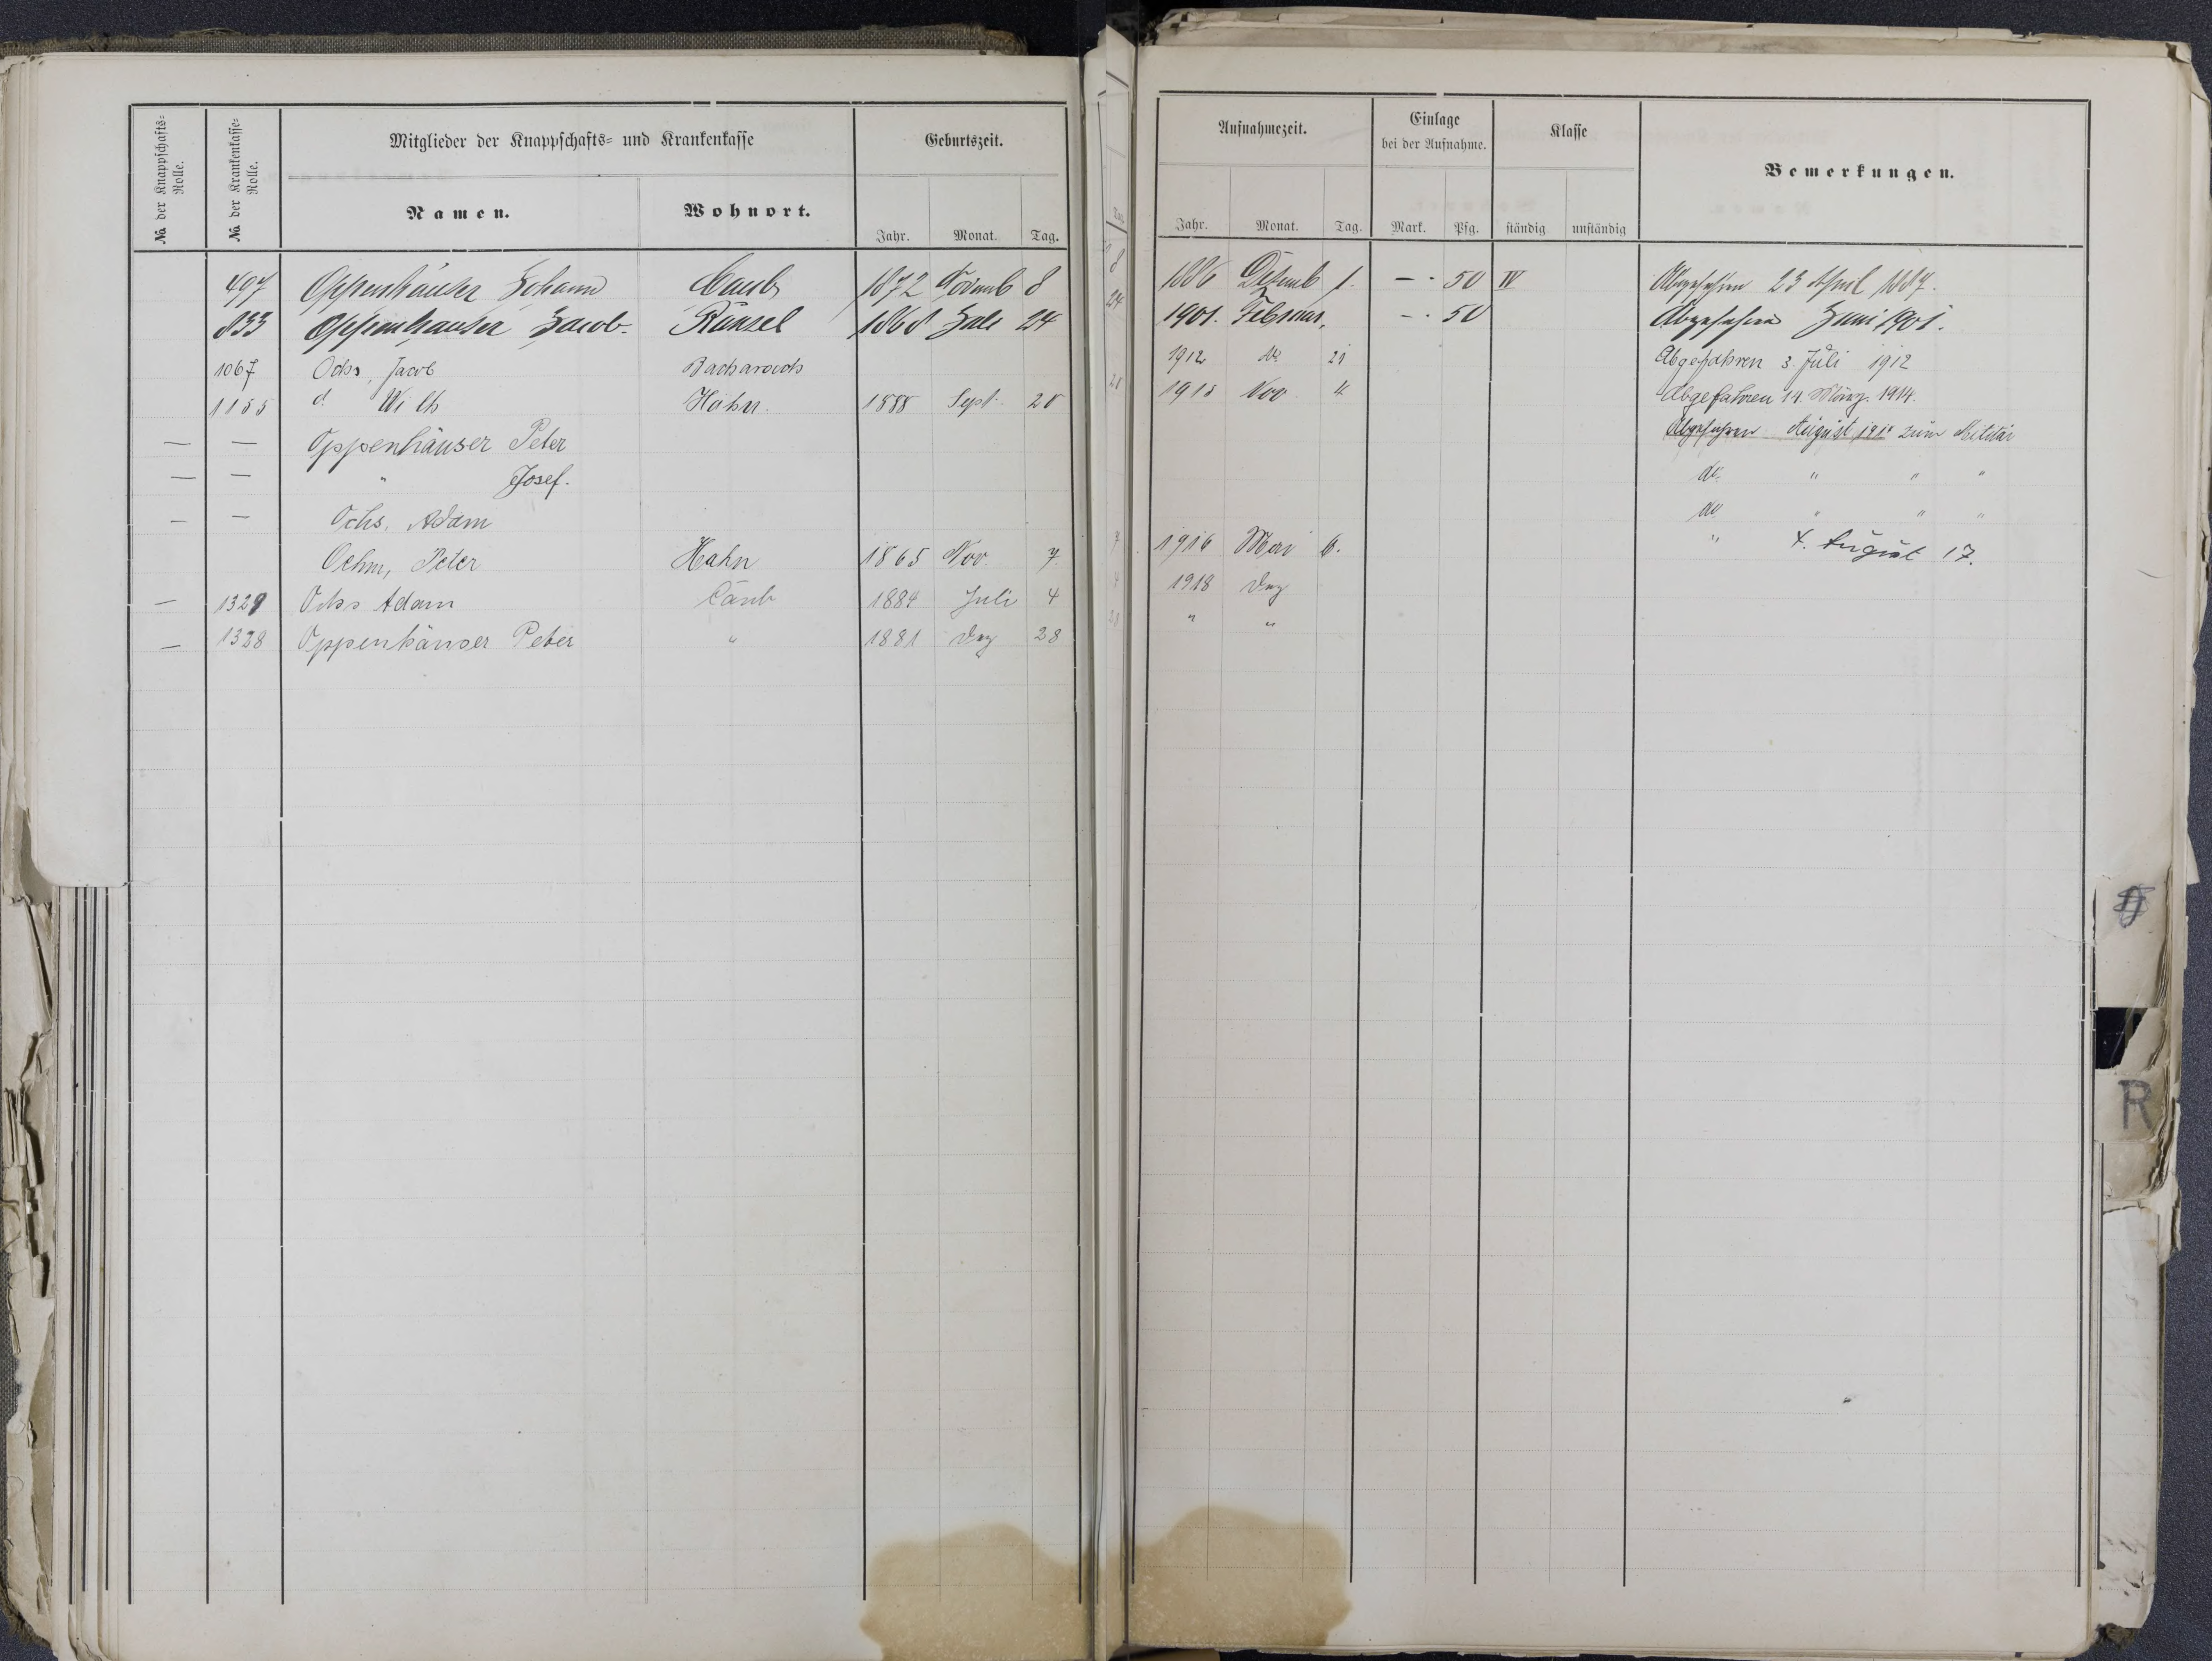 № der Knappschafts-Rolle. № der Krankenkasse-Rolle. Mitglieder der Knappschafts- und Krankenkasse Geburtszeit. Aufnahmezeit. Einlage bei der Aufnahme. Klasse Bemerkungen.
Namen. Wohnort. Jahr. Monat. Tag. Jahr. Monat. Tag. Mark. Pfg. ständig unständig
497 Oppenhäuser Johann Caub 1872 Novemb 8 1886 Dezemb 1. — · 50 IV Abgefahren 23 April 1887.
833 Oppenhäuser Jacob. Ransel 1868 Juli 24 1901. Februar. — · 50 Abgefahren Juni 1901.
1067 Ochs, Jacob Bacharach 1912 21 Abgefahren 3. Juli 1912
1155 d. Wilh Hahn. 1888 Sept. 20 1913 Nov. 4 Abgefahren 14. März. 1914.
— — Oppenhäuser Peter Abgefahren August zum Militär
— — " Josef. do. " " "
— — Ochs, Adam do " " "
Oehm, Peter Hahn 1865 Nov. 7. 1916 Mai 6. " 4. August 17.
— 1329 Ochs Adam Caub 1884 Juli 4 1918 Dez
— 1328 Oppenhäuser Peter " 1881 Dez 28 " "
R